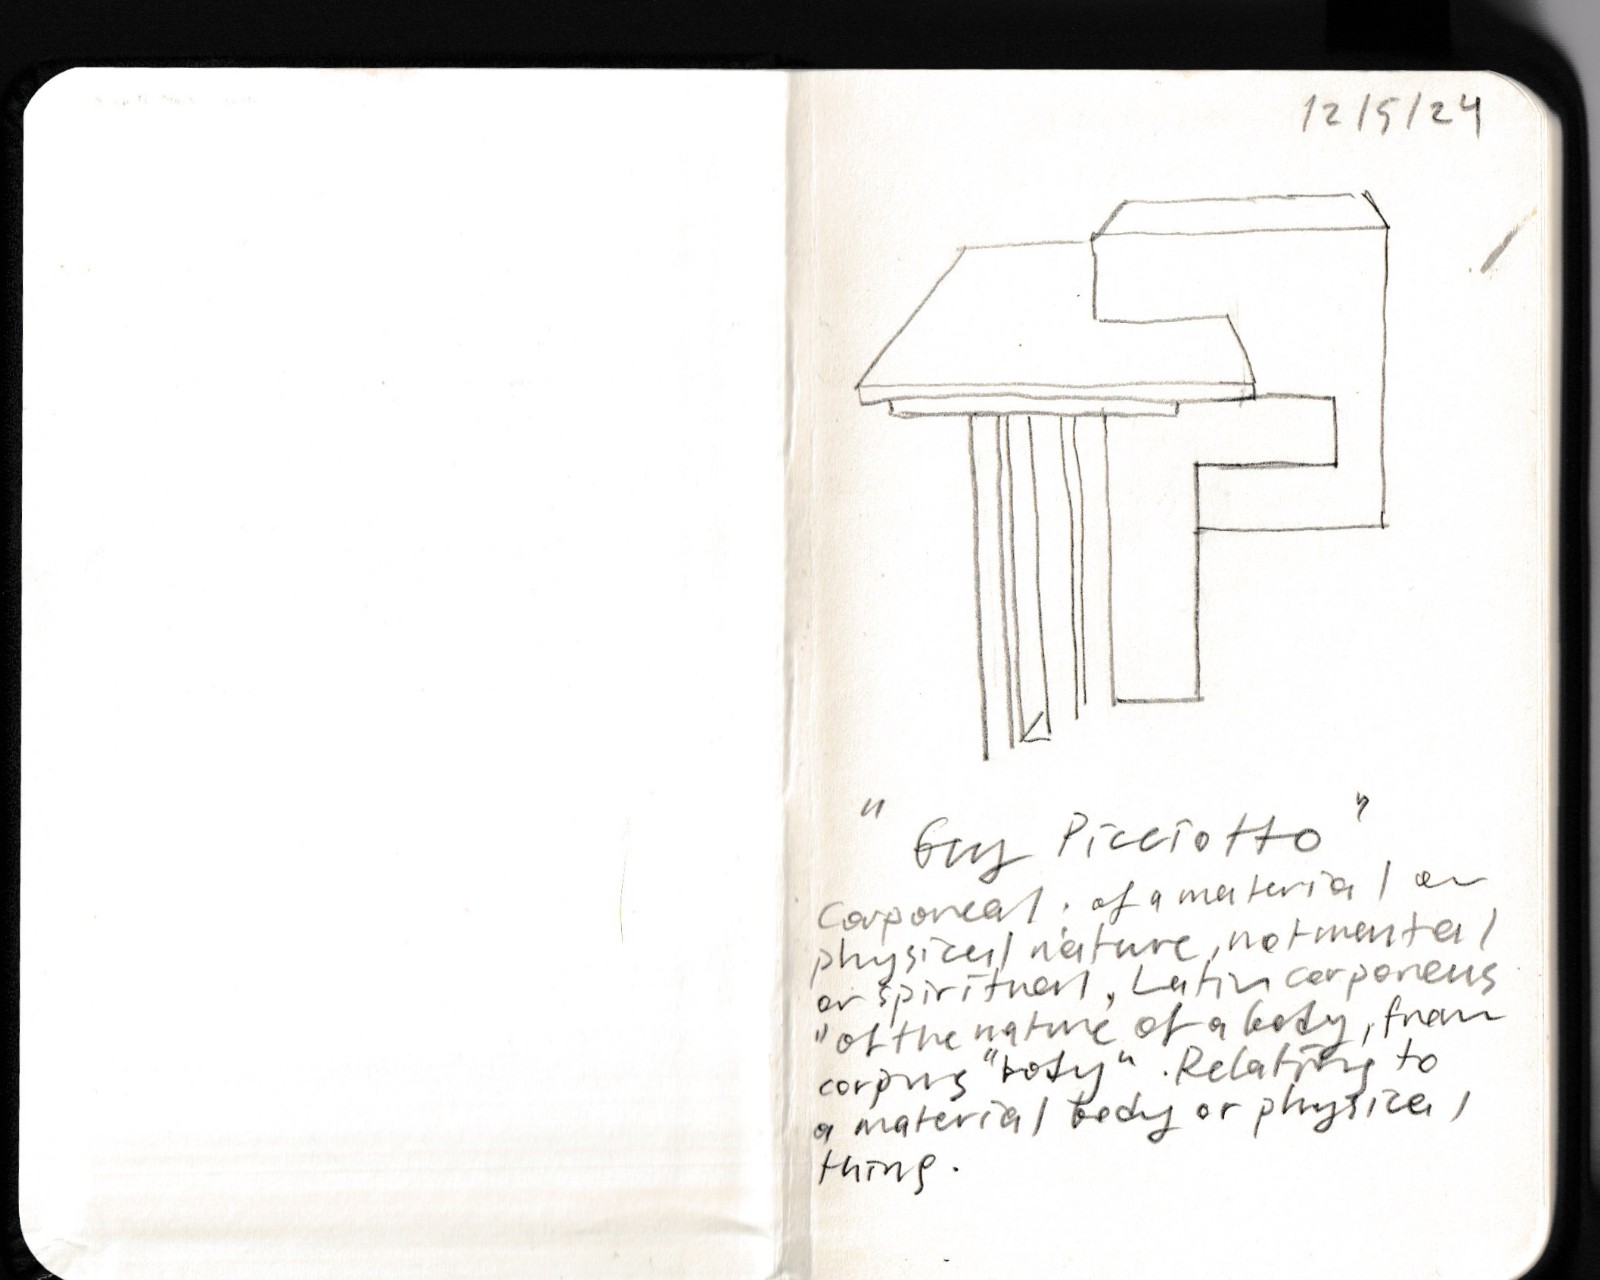 12/5/24
"Guy Picciotto"
Corporeal: of a material or
physical nature, not mental
or spiritual, Latin corporeus
"of the nature of a body, from
corpus "body". Relating to
a material body or physical
thing.